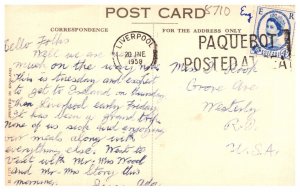 POST CARD
8710
Eng
CORRESPONDENCE
FOR THE ADDRESS ONLY
LIVERPOOL
20 JNE
1958
PAQUEBOT
POSTED AT SEA
E R
Hello Folks
Well we are
much on the way now
This is Tuesday and expect
to get to Ireland on Thursday
then Liverpool early Friday.
It has been a grand trip
none of us sick just enjoying
our meals along with
everything else. Went to
visit with Mr. Mrs Wood
and Mr. Mrs Smith this
morning.
Mrs
Grove Ave
Westerly
R.I.
U.S.A.